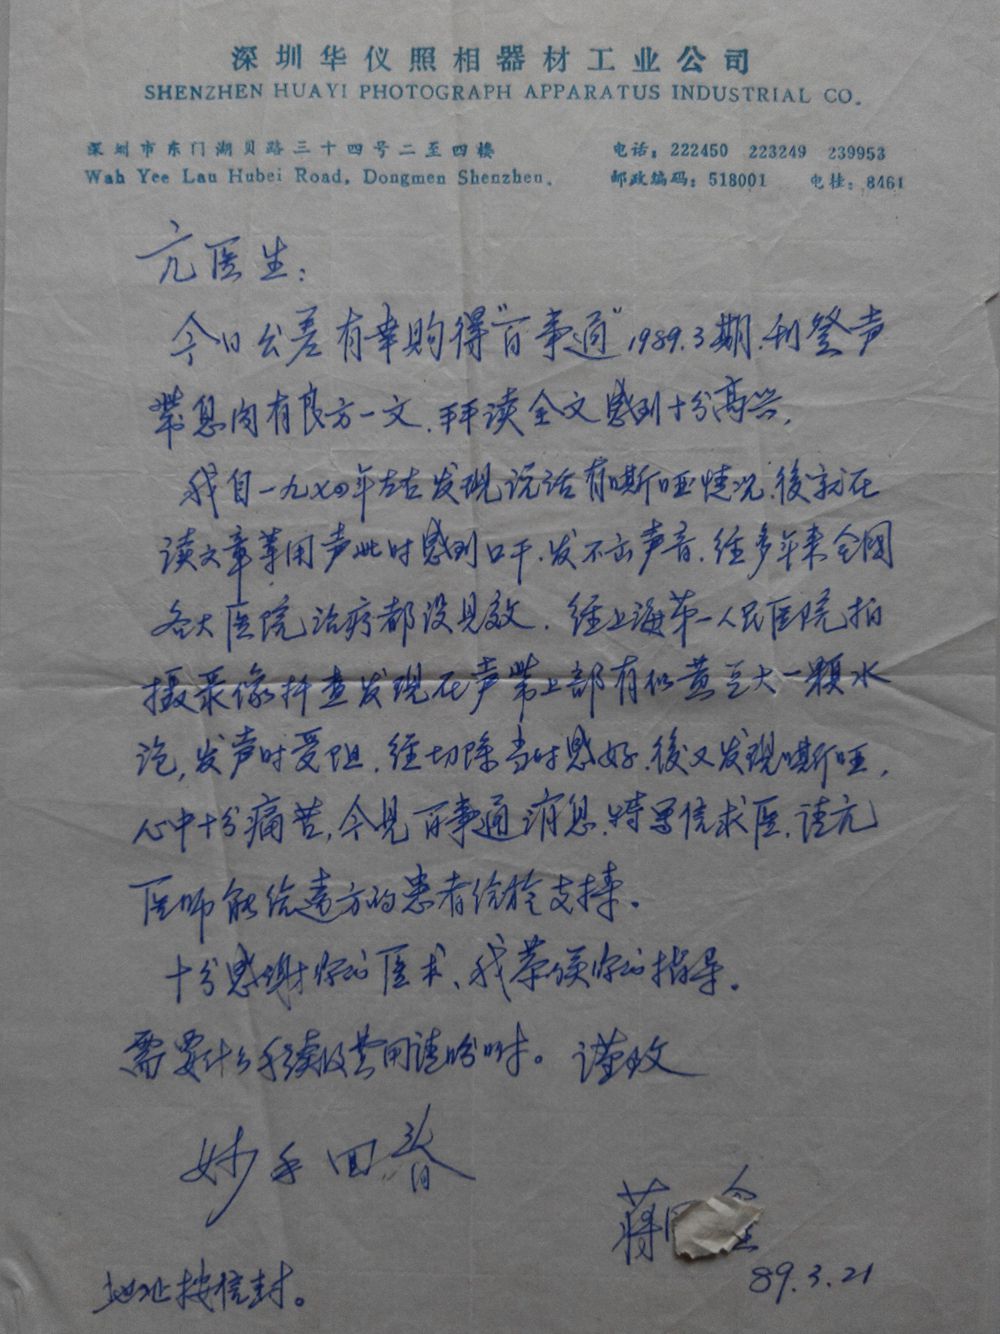 深圳华仪照相器材工业公司
SHENZHEN HUAYI PHOTOGRAPH APPARATUS INDUSTRIAL CO.
深圳市东门湖贝路三十四号二至四楼
电话：222450 223249 239953
Wah Yee Lau Hubei Road, Dongmen Shenzhen.
邮政编码：518001 电挂：8461
亢医生：
今日公差有幸购得“百事通”1989.3期.刊登声
带息肉有良方一文.拜读全文感到十分高兴.
我自一九七四年左右发现说话有嘶哑情况.後就在
读文章等用声此时感到口干.发不出声音.经多年来全國
各大医院治疗都没见效.经上海第一人民医院拍
摄录像抖查发现在声带上部有似黄豆大一颗水
泡,发声时受阻.经切除当时感好.後又发现嘶哑,
心中十分痛苦,今见百事通消息.特写信求医.请亢
医师能给远方的患者给於支持。
十分感谢你的医术、我恭候你的指导。
需要什么手续及费用请吩咐。 谨致
妙手回春
蒋 金
89.3.21
地址按信封。